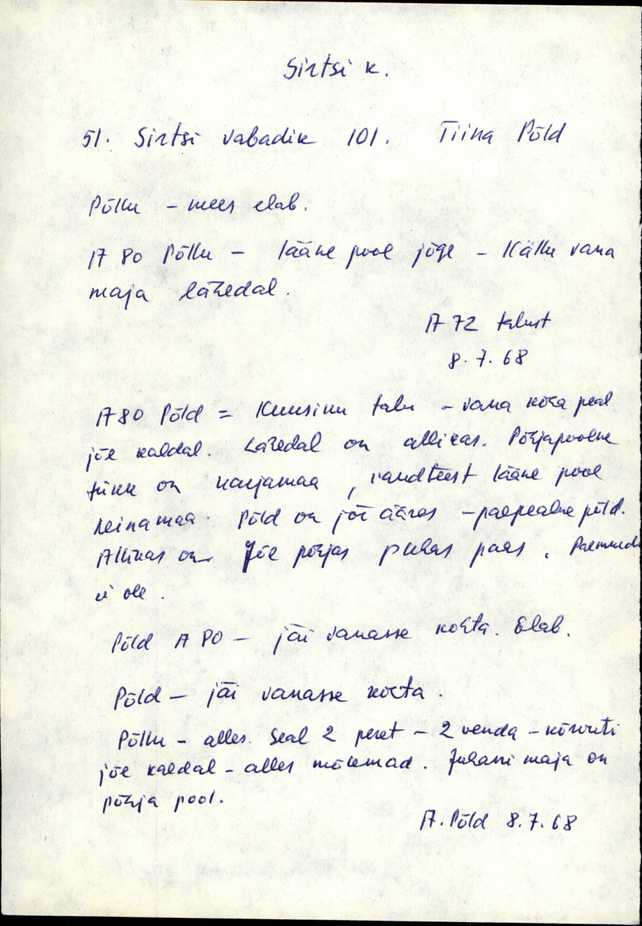 Sirtsi k.
51. Sirtsi vabadik 101. Tiina Põld
Põllu – mees elab.
A 80 Põllu – lääne pool jõge – Källu vana
maja lähedal.
A 72 talust
8.7.68
A 80 Põld = Kuusiku talu – vana koha peal
jõe kaldal. Lähedal on allikas. Põhjapoolne
tükk on karjamaa, raudteest lääne pool
heinamaa. Põld on jõe ääres – paepealne põld.
Allikas on jõe põhjas puhas paes.
ei ole.
Põld A 80 – jäi vanasse kohta. Elab.
Põld – jäi vanasse kohta.
Põllu – alles. Seal 2 peret – 2 venda – kõrvuti
jõe kaldal – alles mõlemad. Juhani maja on
põhja pool.
A. Põld 8.7.68